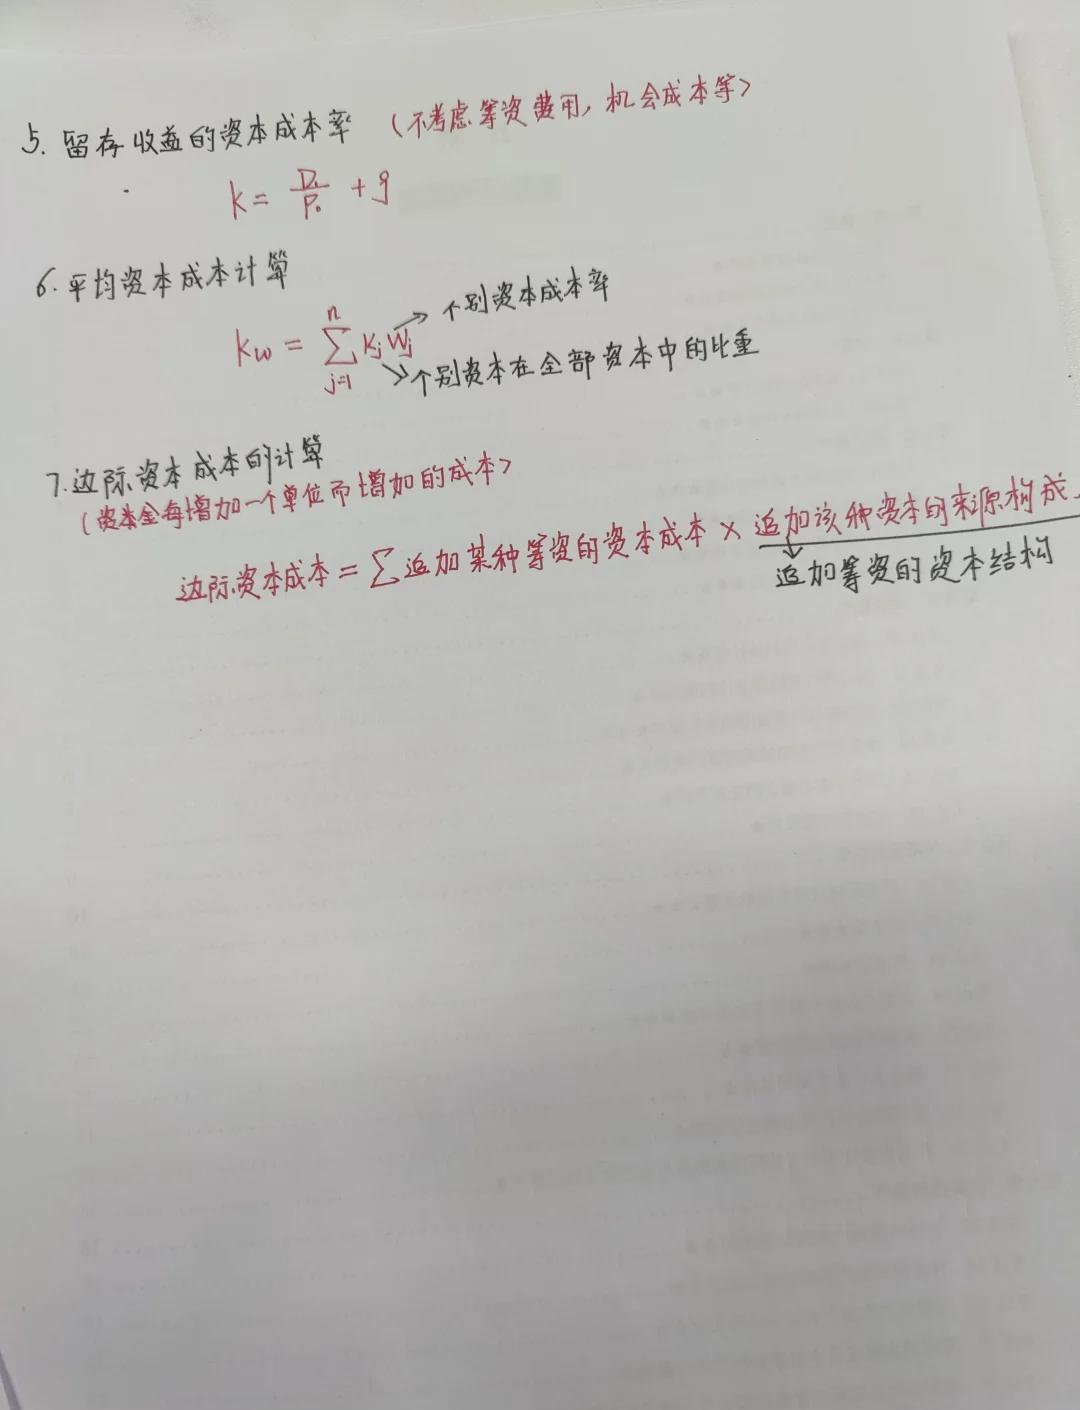 5. 留存收益的资本成本率 (不考虑筹资费用, 机会成本等)
k = D₁/P₀ + g
6. 平均资本成本计算
Kw = Σ(j=1→n) Kj Wj
→ 个别资本成本率
→ 个别资本在全部资本中的比重
7. 边际资本成本的计算
(资本金每增加一个单位而增加的成本)
边际资本成本 = Σ 追加某种筹资的资本成本 × 追加该种资本的来源构成
追加筹资的资本结构